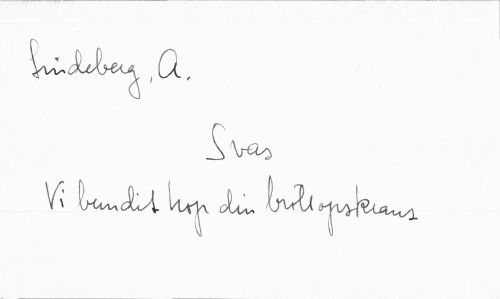 Lindeberg, A.
Svas
Vi bundit hop din bröllopskrans